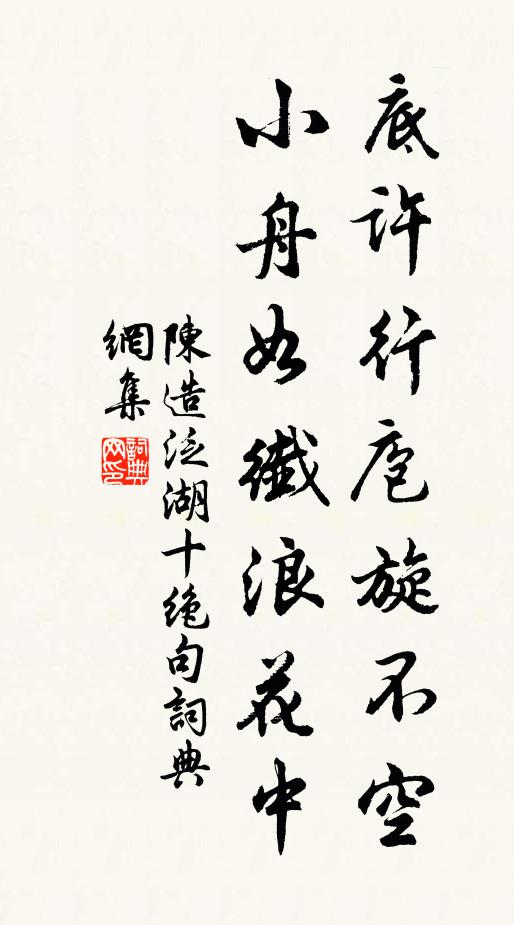 底許行庖旋不空
小舟如織浪花中
陳造泛湖十絕句詞典
網集
詞典
网印